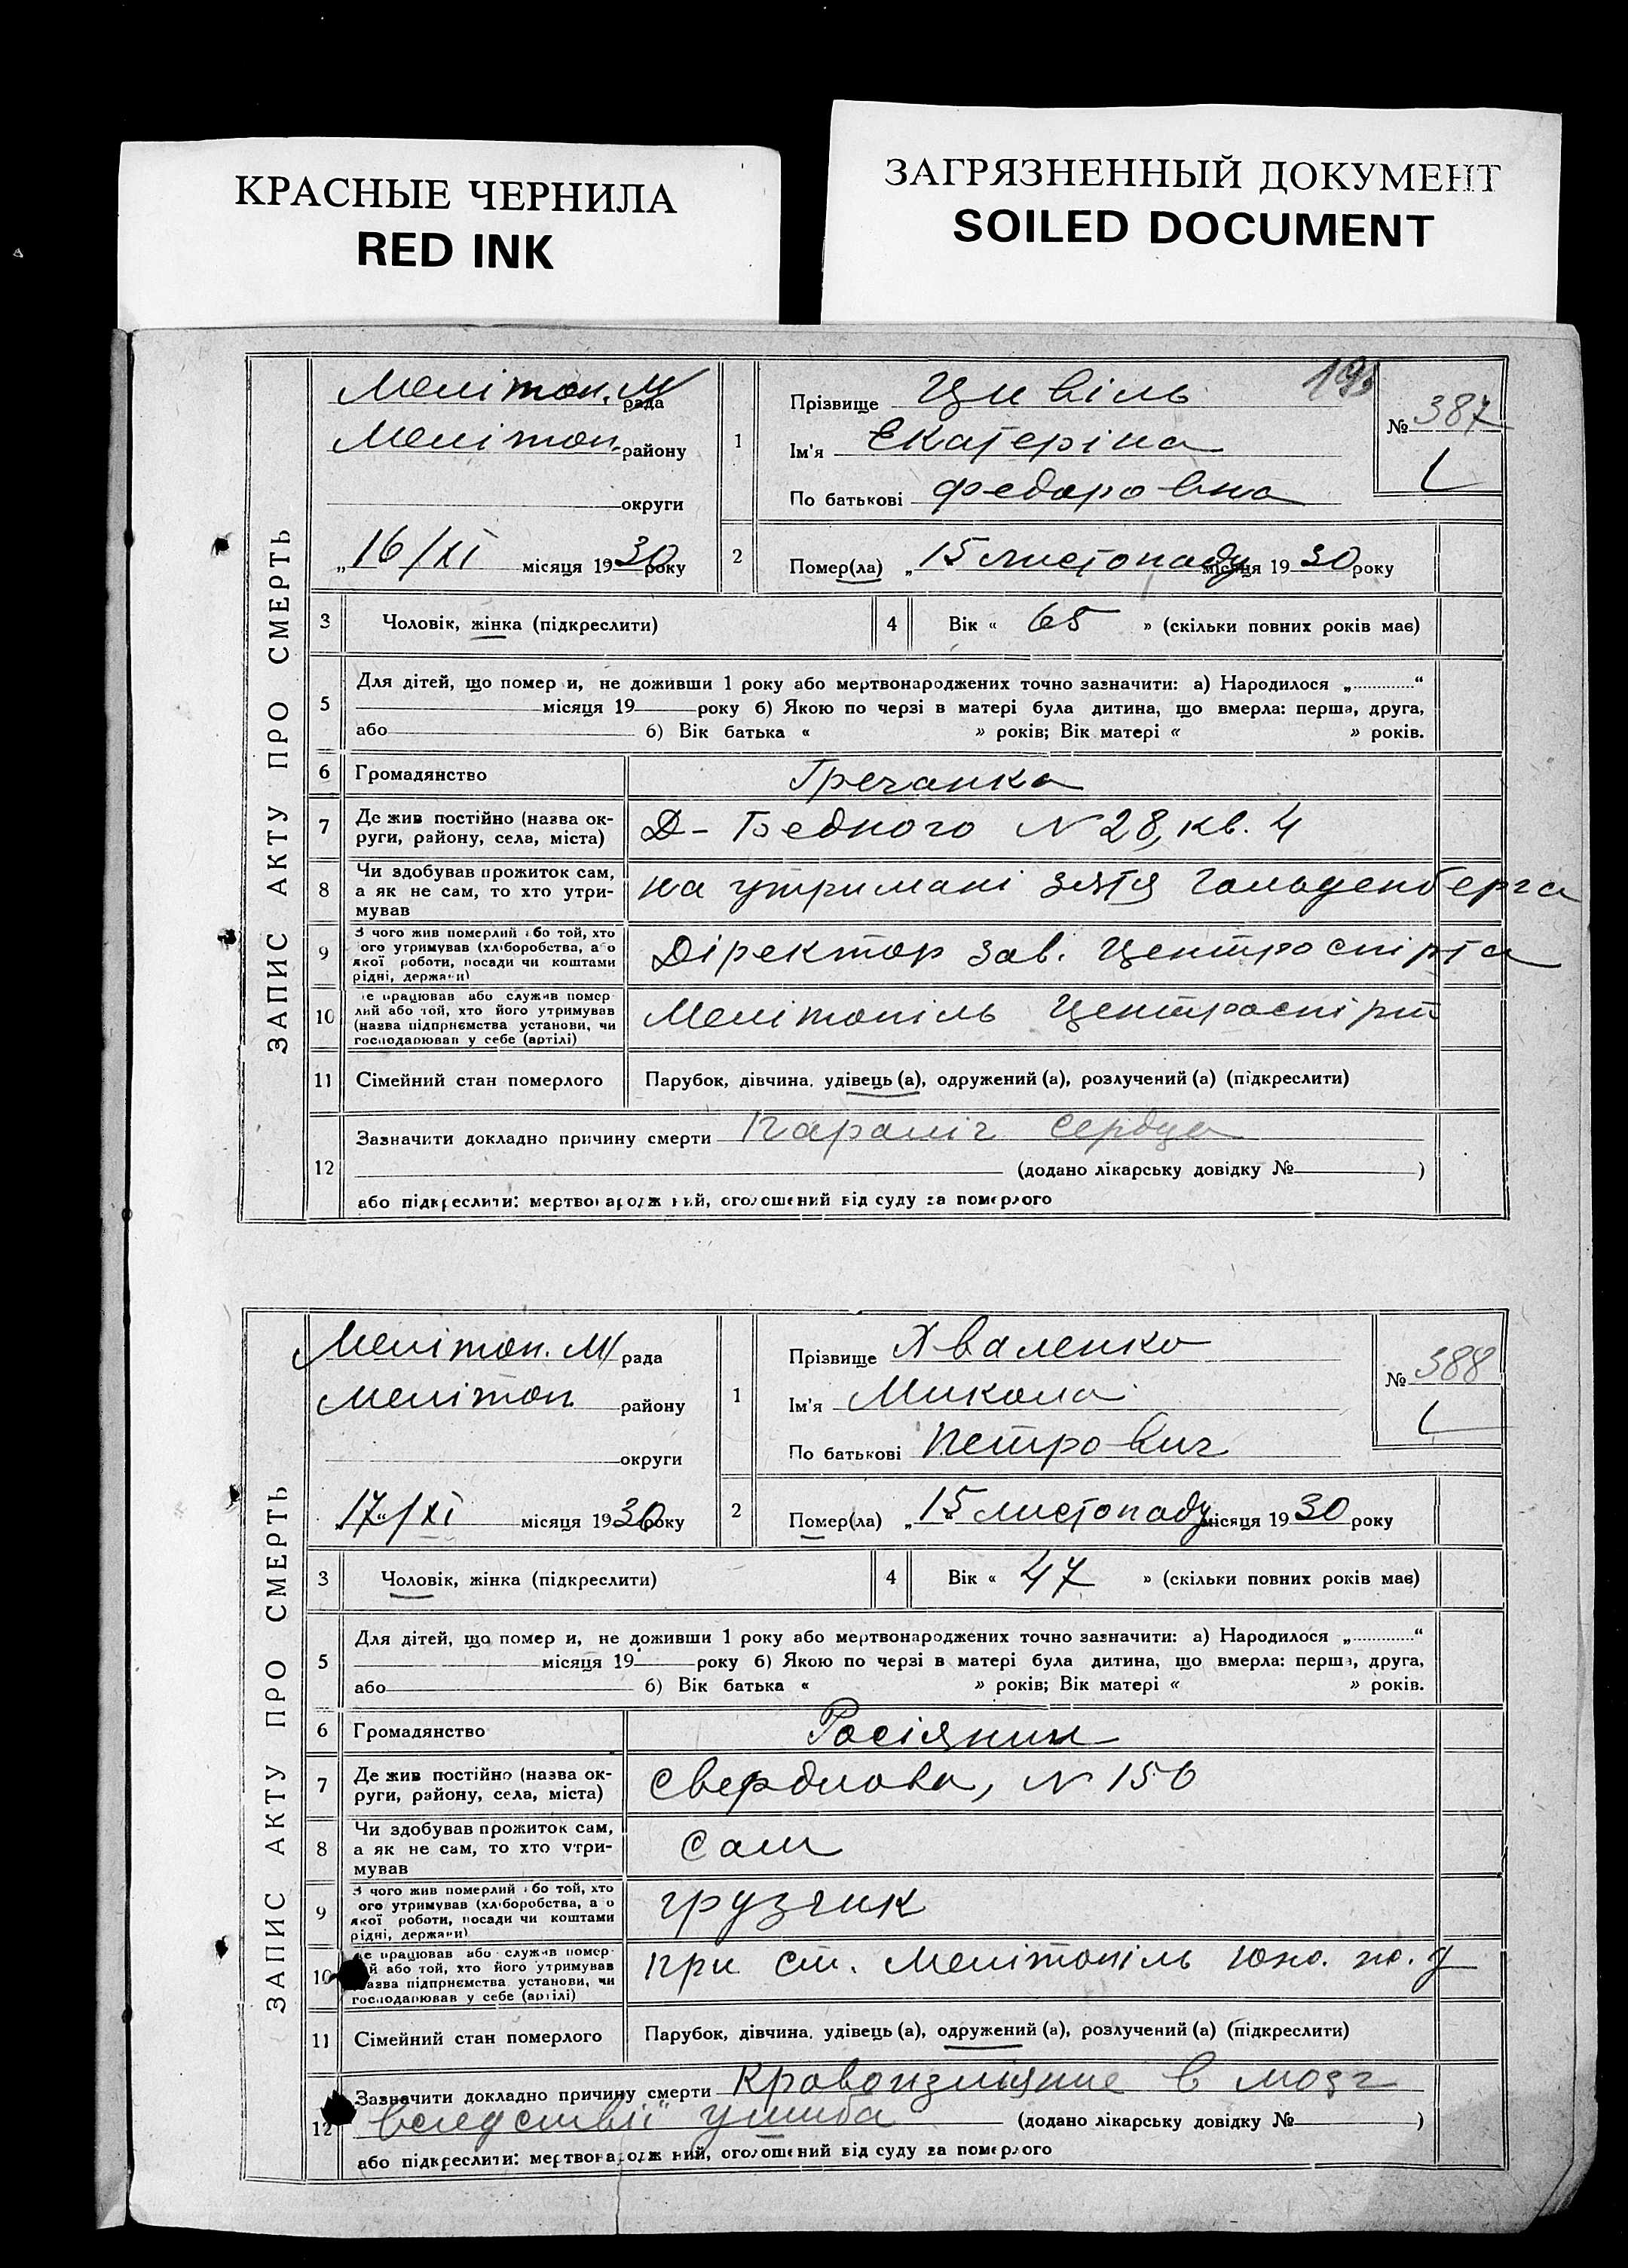 КРАСНЫЕ ЧЕРНИЛА
RED INK
ЗАГРЯЗНЕННЫЙ ДОКУМЕНТ
SOILED DOCUMENT
ЗАПИС АКТУ ПРО СМЕРТЬ
Мелітоп. М/ рада
Мелітоп. району
округи
„16/XI місяця 1930 року
1
Прізвище Цивіль
Ім'я Екатеріна
По батькові Федоровна
195
№ 387
2 Помер(ла) „15 листопаду місяця 1930 року
3 Чоловік, жінка (підкреслити)
4 Вік « 65 » (скільки повних років має)
5 Для дітей, що помер и, не доживши 1 року або мертвонароджених точно зазначити: а) Народилося „............“
місяця 19 року б) Якою по черзі в матері була дитина, що вмерла: перша, друга,
або б) Вік батька « » років; Вік матері « » років.
6 Громадянство Гречанка
7 Де жив постійно (назва ок-
руги, району, села, міста) Д-Бедного N 28, кв. 4
8 Чи здобував прожиток сам,
а як не сам, то хто утри-
мував на утримані зятя Гольденберга
9 З чого жив померлий або той, хто
ого утримував (хліборобства, а о
якої роботи, посади чи коштами
рідні, держави) Діректор зав. Центроспірта
10 е працював або служив помер
лий або той, хто його утримував
(назва підприємства установи, чи
господарював у себе (артілі) Мелітопіль Центроспірт
11 Сімейний стан померлого Парубок, дівчина, удівець (а), одружений (а), розлучений (а) (підкреслити)
12 Зазначити докладно причину смерти Параліч сердца
(додано лікарську довідку № )
або підкреслити: мертвонароджений, оголошений від суду за померлого
ЗАПИС АКТУ ПРО СМЕРТЬ
Мелітоп. М/ рада
Мелітоп району
округи
„17“/XI місяця 1930 року
1
Прізвище Хваленко
Ім'я Микола
По батькові Петрович
№ 388
2 Помер(ла) „15 листопаду місяця 1930 року
3 Чоловік, жінка (підкреслити)
4 Вік « 47 » (скільки повних років має)
5 Для дітей, що помер и, не доживши 1 року або мертвонароджених точно зазначити: а) Народилося „............“
місяця 19 року б) Якою по черзі в матері була дитина, що вмерла: перша, друга,
або б) Вік батька « » років; Вік матері « » років.
6 Громадянство Росіянин
7 Де жив постійно (назва ок-
руги, району, села, міста) Свердлова, N 156
8 Чи здобував прожиток сам,
а як не сам, то хто утри-
мував Сам
9 З чого жив померлий або той, хто
ого утримував (хліборобства, а о
якої роботи, посади чи коштами
рідні, держави) грузчик
10 е працював або служив помер
й або той, хто його утримував
назва підприємства установи, чи
господарював у себе (артілі) при ст. Мелітопіль южо. ж. д
11 Сімейний стан померлого Парубок, дівчина, удівець (а), одружений (а), розлучений (а) (підкреслити)
12 Зазначити докладно причину смерти Кровоизлияние в мозг
вследствії ушиба (додано лікарську довідку № )
або підкреслити: мертвонароджений, оголошений від суду за померлого